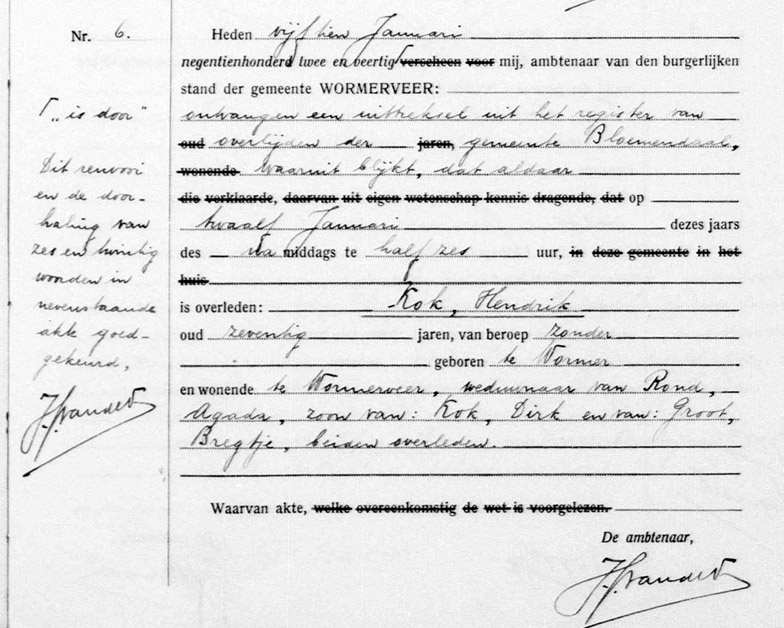 Nr. 6.
Heden vijftien Januari
negentienhonderd twee en veertig ⌈ verscheen voor mij, ambtenaar van den burgerlijken
stand der gemeente WORMERVEER:
ontvangen een uittreksel uit het register van
oud overlijden der jaren, gemeente Bloemendaal,
wonende waaruit blijkt, dat aldaar
die verklaarde, daarvan uit eigen wetenschap kennis dragende, dat op
twaalf Januari dezes jaars
des na middags te half zes uur, in deze gemeente in het
huis
is overleden: Kok, Hendrik
oud zeventig jaren, van beroep zonder
geboren te Wormer
en wonende te Wormerveer, weduwnaar van Rond,
Agada, zoon van: Kok, Dirk en van: Groot,
Bregtje, beiden overleden.
Waarvan akte, welke overeenkomstig de wet is voorgelezen.
De ambtenaar,
⌈ „is door"
Dit renvooi
en de door-
haling van
zes en twintig
woorden in
nevenstaande
akte goed-
gekeurd.